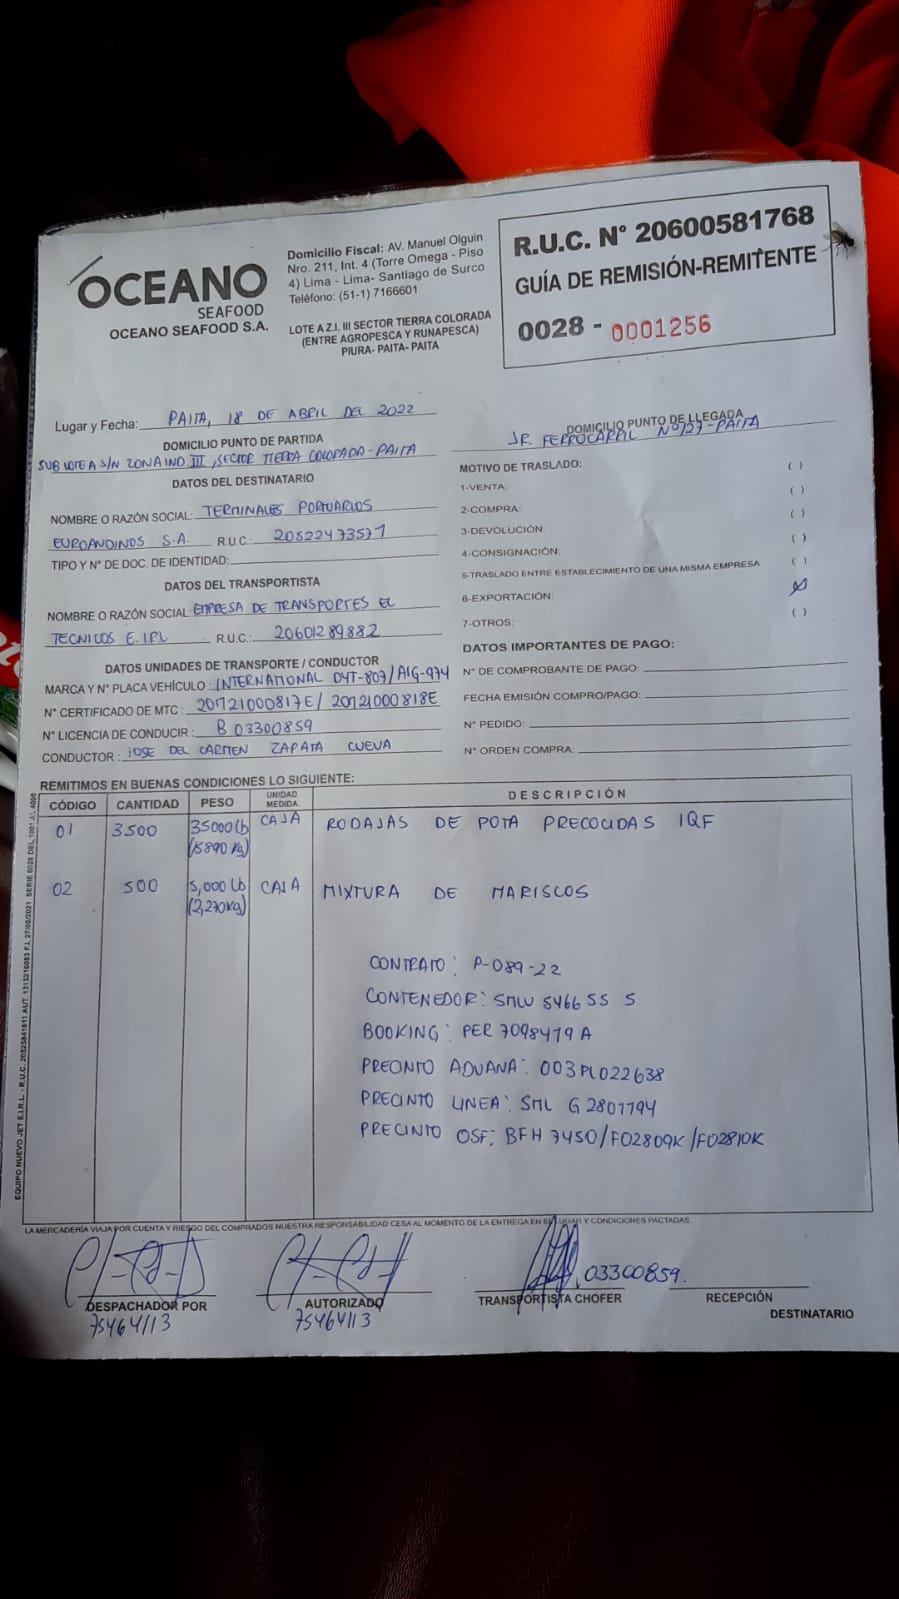 OCEANO
SEAFOOD
OCEANO SEAFOOD S.A.
Domicilio Fiscal: AV. Manuel Olguin
Nro. 211, Int. 4 (Torre Omega - Piso
4) Lima - Lima- Santiago de Surco
Teléfono: (51-1) 7166601
LOTE A Z.I. III SECTOR TIERRA COLORADA
(ENTRE AGROPESCA Y RUNAPESCA)
PIURA- PAITA- PAITA
R.U.C. N° 20600581768
GUÍA DE REMISIÓN-REMITENTE
0028 - 0001256
Lugar y Fecha: PAITA, 18 DE ABRIL DEL 2022
DOMICILIO PUNTO DE PARTIDA
SUB LOTE A S/N ZONA IND. III, SECTOR TIERRA COLORADA-PAITA
DATOS DEL DESTINATARIO
NOMBRE O RAZÓN SOCIAL: TERMINALES PORTUARIOS
EUROANDINOS S.A. R.U.C.: 20522473571
TIPO Y N° DE DOC. DE IDENTIDAD:
DATOS DEL TRANSPORTISTA
NOMBRE O RAZÓN SOCIAL: EMPRESA DE TRANSPORTES EL
TECNICOS E.IRL R.U.C.: 20601289882
DATOS UNIDADES DE TRANSPORTE / CONDUCTOR
MARCA Y N° PLACA VEHÍCULO: INTERNATIONAL D4T-807/A1G-974
N° CERTIFICADO DE MTC: 20721000817E/ 20721000818E
N° LICENCIA DE CONDUCIR: B 03300859
CONDUCTOR: JOSE DEL CARMEN ZAPATA CUEVA
DOMICILIO PUNTO DE LLEGADA
JR FERROCARRAL N°127-PAITA
MOTIVO DE TRASLADO: ( )
1-VENTA: ( )
2-COMPRA: ( )
3-DEVOLUCIÓN: ( )
4-CONSIGNACIÓN: ( )
5-TRASLADO ENTRE ESTABLECIMIENTO DE UNA MISMA EMPRESA
6-EXPORTACIÓN: (X)
7-OTROS: ( )
DATOS IMPORTANTES DE PAGO:
N° DE COMPROBANTE DE PAGO:
FECHA EMISIÓN COMPRO/PAGO:
N° PEDIDO:
N° ORDEN COMPRA:
REMITIMOS EN BUENAS CONDICIONES LO SIGUIENTE:
CÓDIGO CANTIDAD PESO UNIDAD MEDIDA. DESCRIPCIÓN
01 3500 35000 lb CAJA RODAJAS DE POTA PRECOCIDAS IQF
(15890 Kg)
02 500 5,000 Lb CAJA MIXTURA DE MARISCOS
(2,270Kg)
CONTRATO: P-089-22
CONTENEDOR: SMLU 546655 5
BOOKING: PER 7098479 A
PRECINTO ADUANA: 003PL022638
PRECINTO LINEA: SML G 2801794
PRECINTO OSF: BFH 7450/F02809K/F02810K
EQUIPO NUEVO JET E.I.R.L. - R.U.C. 20525841911 AUT. 1315216083 F.I. 27/08/2021 SERIE 0028 DEL 1001 AL 4000
LA MERCADERÍA VIAJA POR CUENTA Y RIESGO DEL COMPRADOS NUESTRA RESPONSABILIDAD CESA AL MOMENTO DE LA ENTREGA EN EL LUGAR Y CONDICIONES PACTADAS.
03300859.
DESPACHADOR POR AUTORIZADO TRANSPORTISTA CHOFER RECEPCIÓN
75464113 75464113
DESTINATARIO